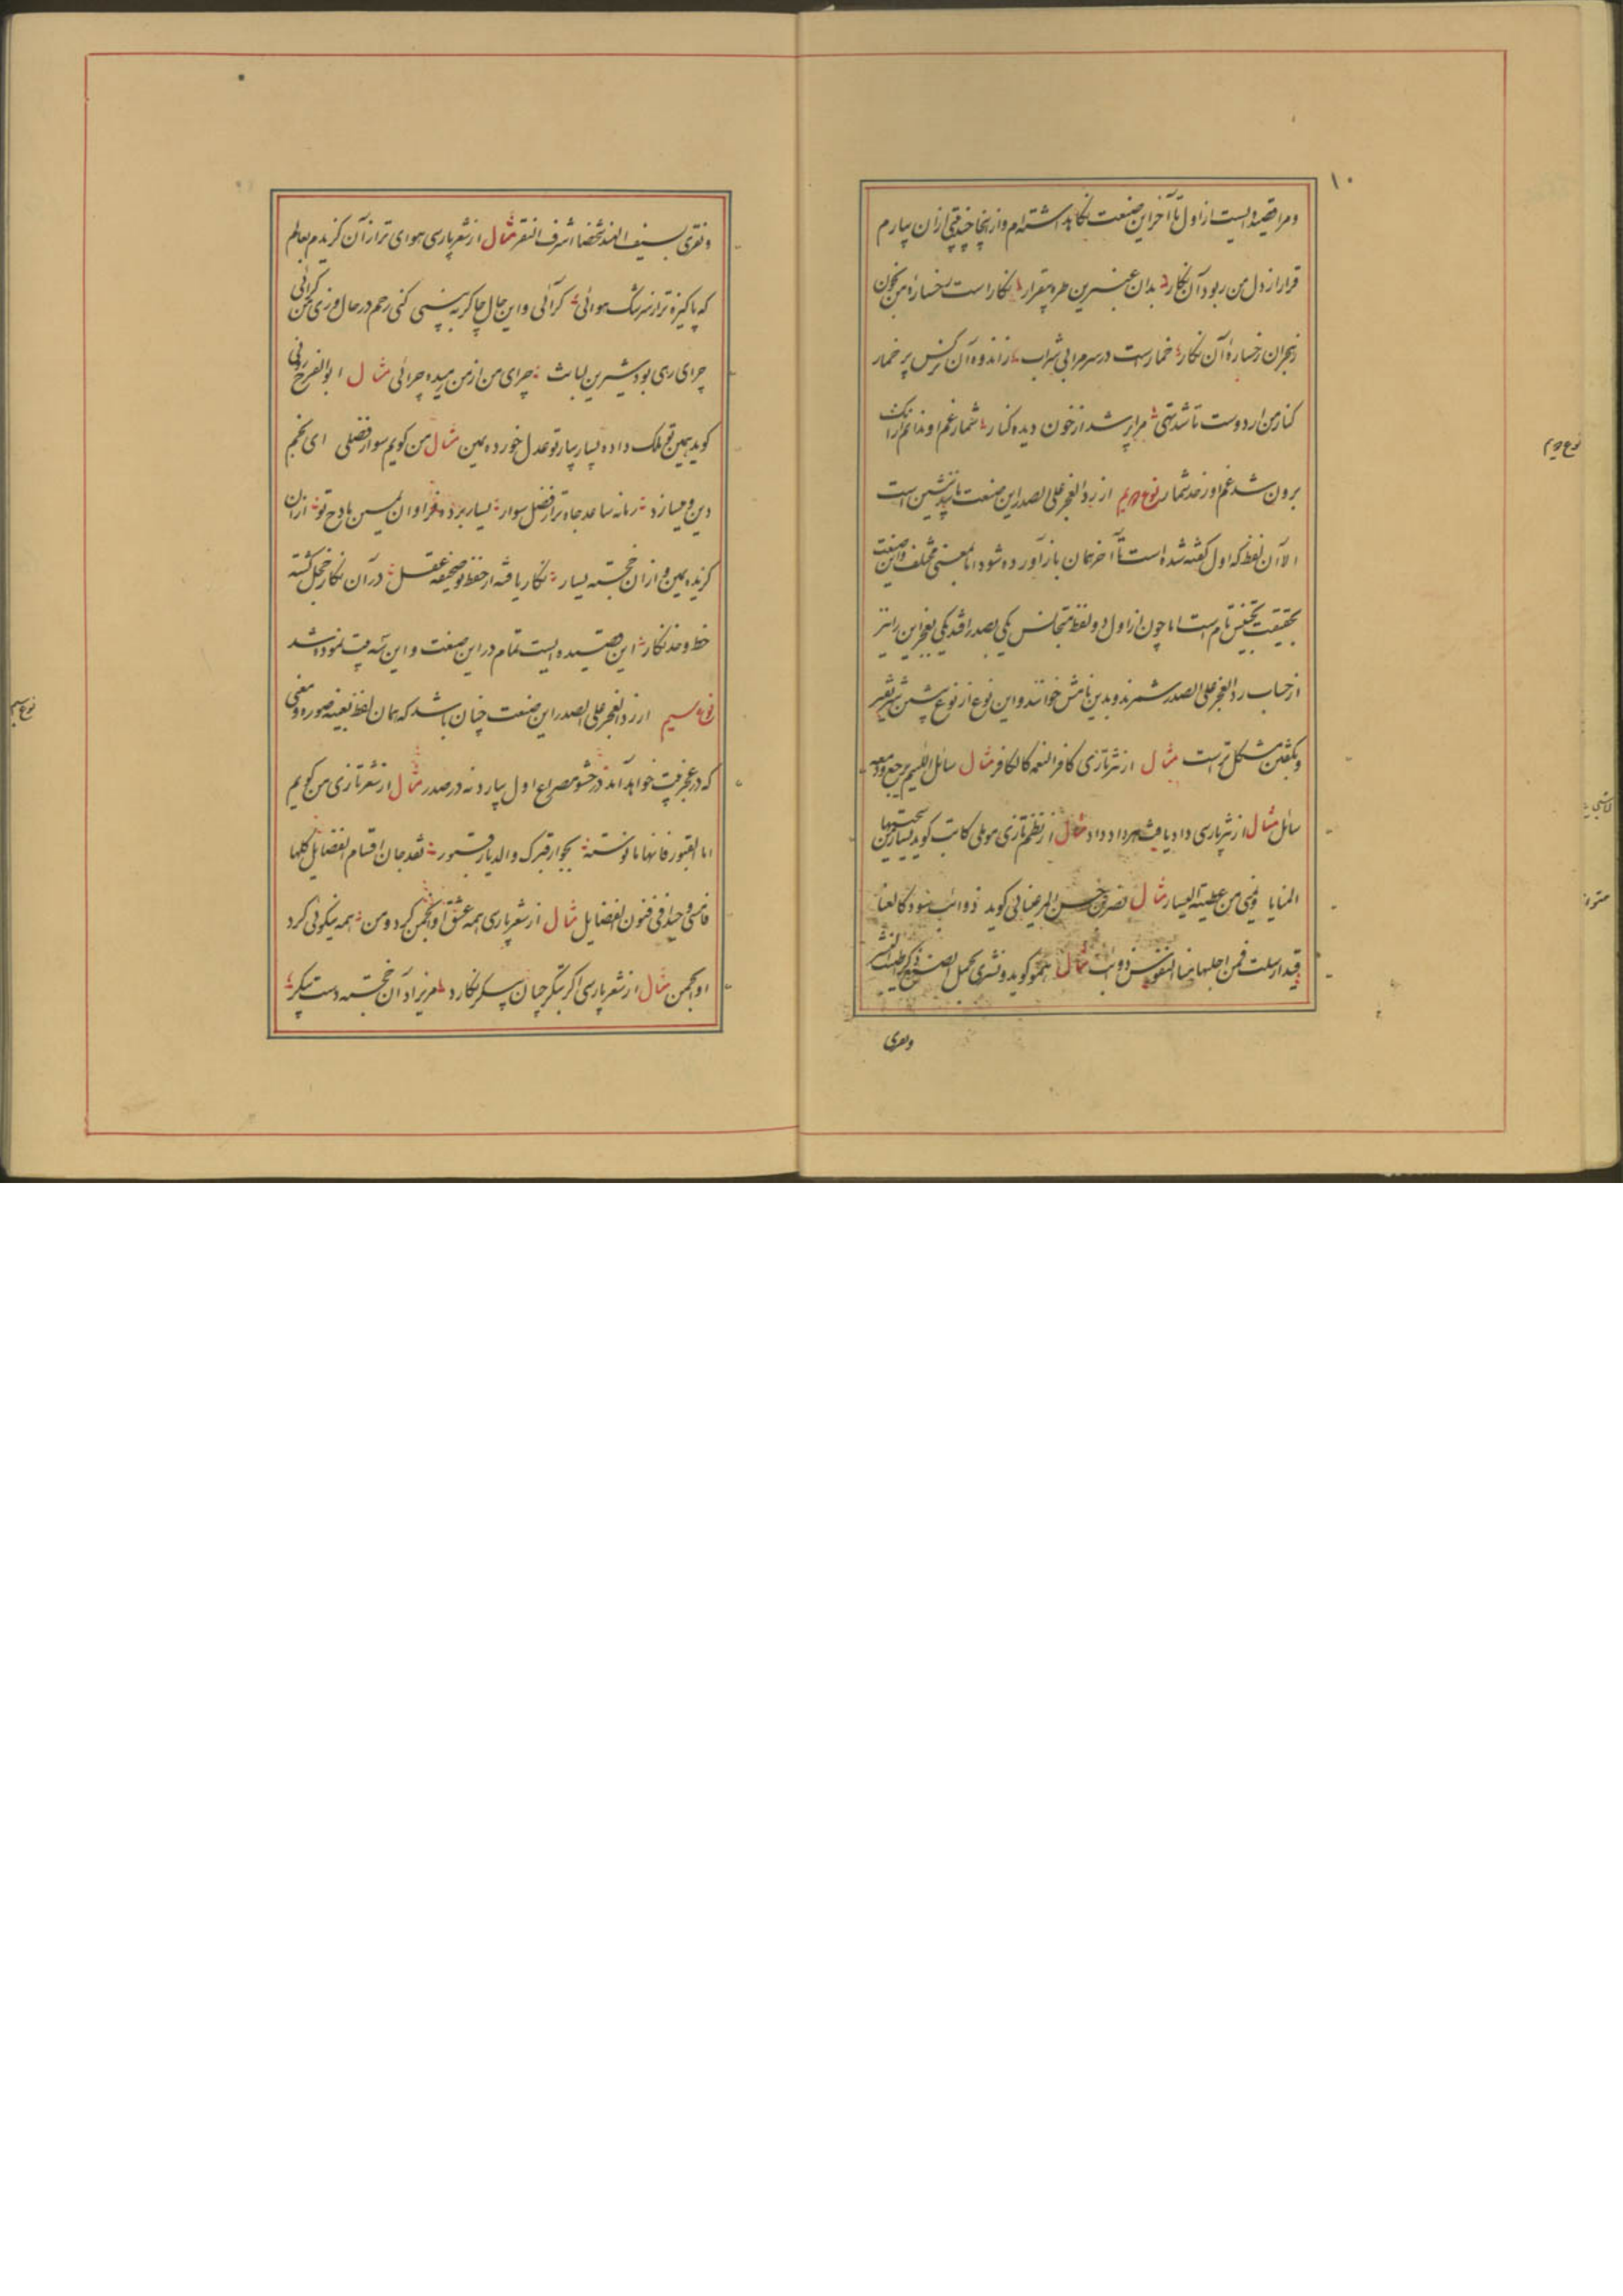 ۱۰
و مرا قصیده ایست از اول تا آخر این صنعت نگاه داشته‌ام و از آنجا چند بیتی از آن بیارم
قرار از دل من ربود آن نگار بدان عنبرین طره بیقرار نگار است رخساره من بخون
ز هجران رخساره آن نگار خمار است در سر مرا بی شراب ز اندوه آن نرگس پر خمار
کنار من از دوست تا شد تهی مرا پر شد از خون دیده کنار شمار غم او ندانم از آنک
برون شد غم او ز حد شمار نوع دویم از رد العجز علی الصدر این صنعت
الا آن لفظ که اول گفته شده است تا آخر همان باز آورده شود اما بمعنی مختلف و این صنعت
بحقیقت تجنیس تام است اما چون از اول دو لفظ متجانس یکی بصدر افتد یکی بعجز این را نیز
از حساب رد العجز علی الصدر شمرند و بدین نامش خوانند و این نوع از نوع پیشین
مشکل تر است مثال از نثر تازی کافر النعمه کالکافر مثال سائل اللئیم یرجع و دمعه
سائل مثال از نثر پارسی مثال از نظم تازی موملی کاتب گوید یسار من سجیتها
المنایا و یمنی من عطیته الیسار مثال نصر بن حسن المرغینانی گوید ذوائب سود کالعنا
قید ارسلت فمن اجلها منا النفوس ذوائب مثال همو گوید و نشری بجمیل الصنع ذکر اطیب النشر
و نفری
نوع دویم
و نفری بسیف الهند مثال از شعر پارسی هوای ترا زان گزیدم بعالم
که پاکیزه تر از سرشک هوائی گر آئی و این حال چاکر ببینی کنی رحم در حال و زی من گرائی
چرای مثال ابو الفرج رونی
گوید یمین تو ملک داده یسار یسار تو عدل خورده یمین مثال من گویم سوار فضلی ای نجم
دین و میسازد زمانه ساعد جاه ترا ز فضل سوار یسار برده فراوان یمین مادح تو از آن
گزیده یمین و از آن خجسته یسار نگار یافته از خط تو صحیفه عقل در آن نگار خجل گشته
خط و خد نگار این قصیده ایست تمام در این صنعت و این سه بیت نموده شد
نوع سیم از رد العجز علی الصدر این صنعت چنان باشد که همان لفظ بعینه صوره و معنی
که در عجز بیت خواهد آمد در حشو مصراع اول بیارد نه در صدر مثال از شعر تازی من گویم
اما القبور فانها مانوسته بجوار قبرک والدیار قبور
مثال از شعر پارسی همه عشق او انجمن گرد من همه نیکوئی گرد
او انجمن مثال از شعر پارسی اگر بتگر چنان پیکر نگارد مریزاد آن خجسته دست بتگر
نوع سیم